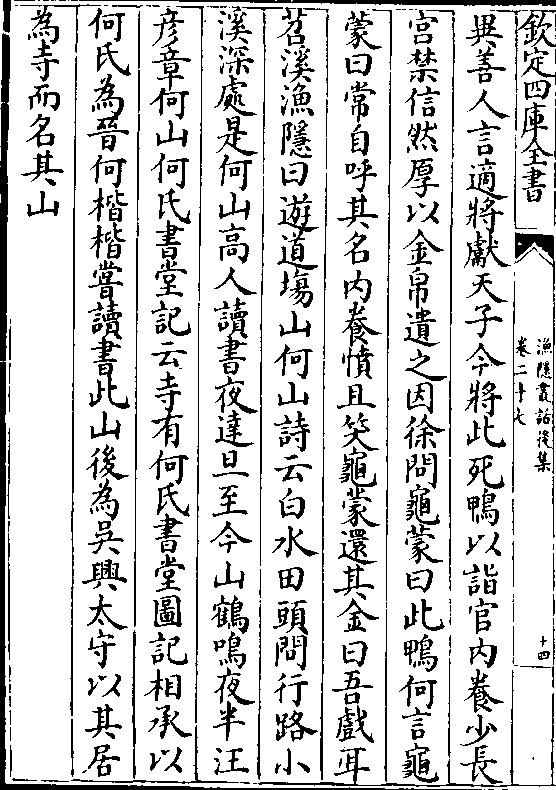 欽定四庫全書
漁隱叢話後集
卷二十七
十四
異善人言適將獻天子今將此死鴨以詣官内養少長
宫禁信然厚以金帛遺之因徐問龜蒙曰此鴨何言龜
蒙曰常自呼其名内養憤且笑龜蒙還其金曰吾戲耳
苕溪漁隱曰遊道塲山何山詩云白水田頭問行路小
溪深處是何山高人讀書夜達旦至今山鶴鳴夜半汪
彦章何山何氏書堂記云寺有何氏書堂圖記相承以
何氏為晉何楷楷嘗讀書此山後為吳興太守以其居
為寺而名其山